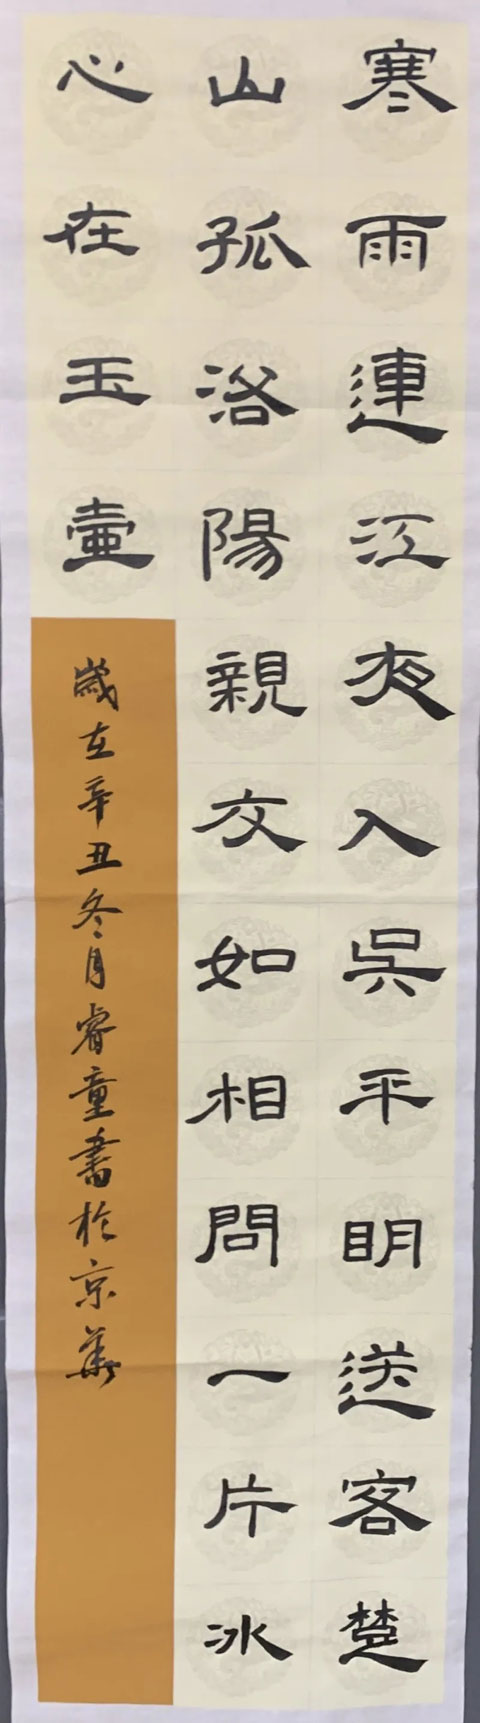 寒雨連江夜入吳平明送客楚
山孤洛陽親友如相問一片冰
心在玉壷
歲在辛丑冬月睿童書於京華